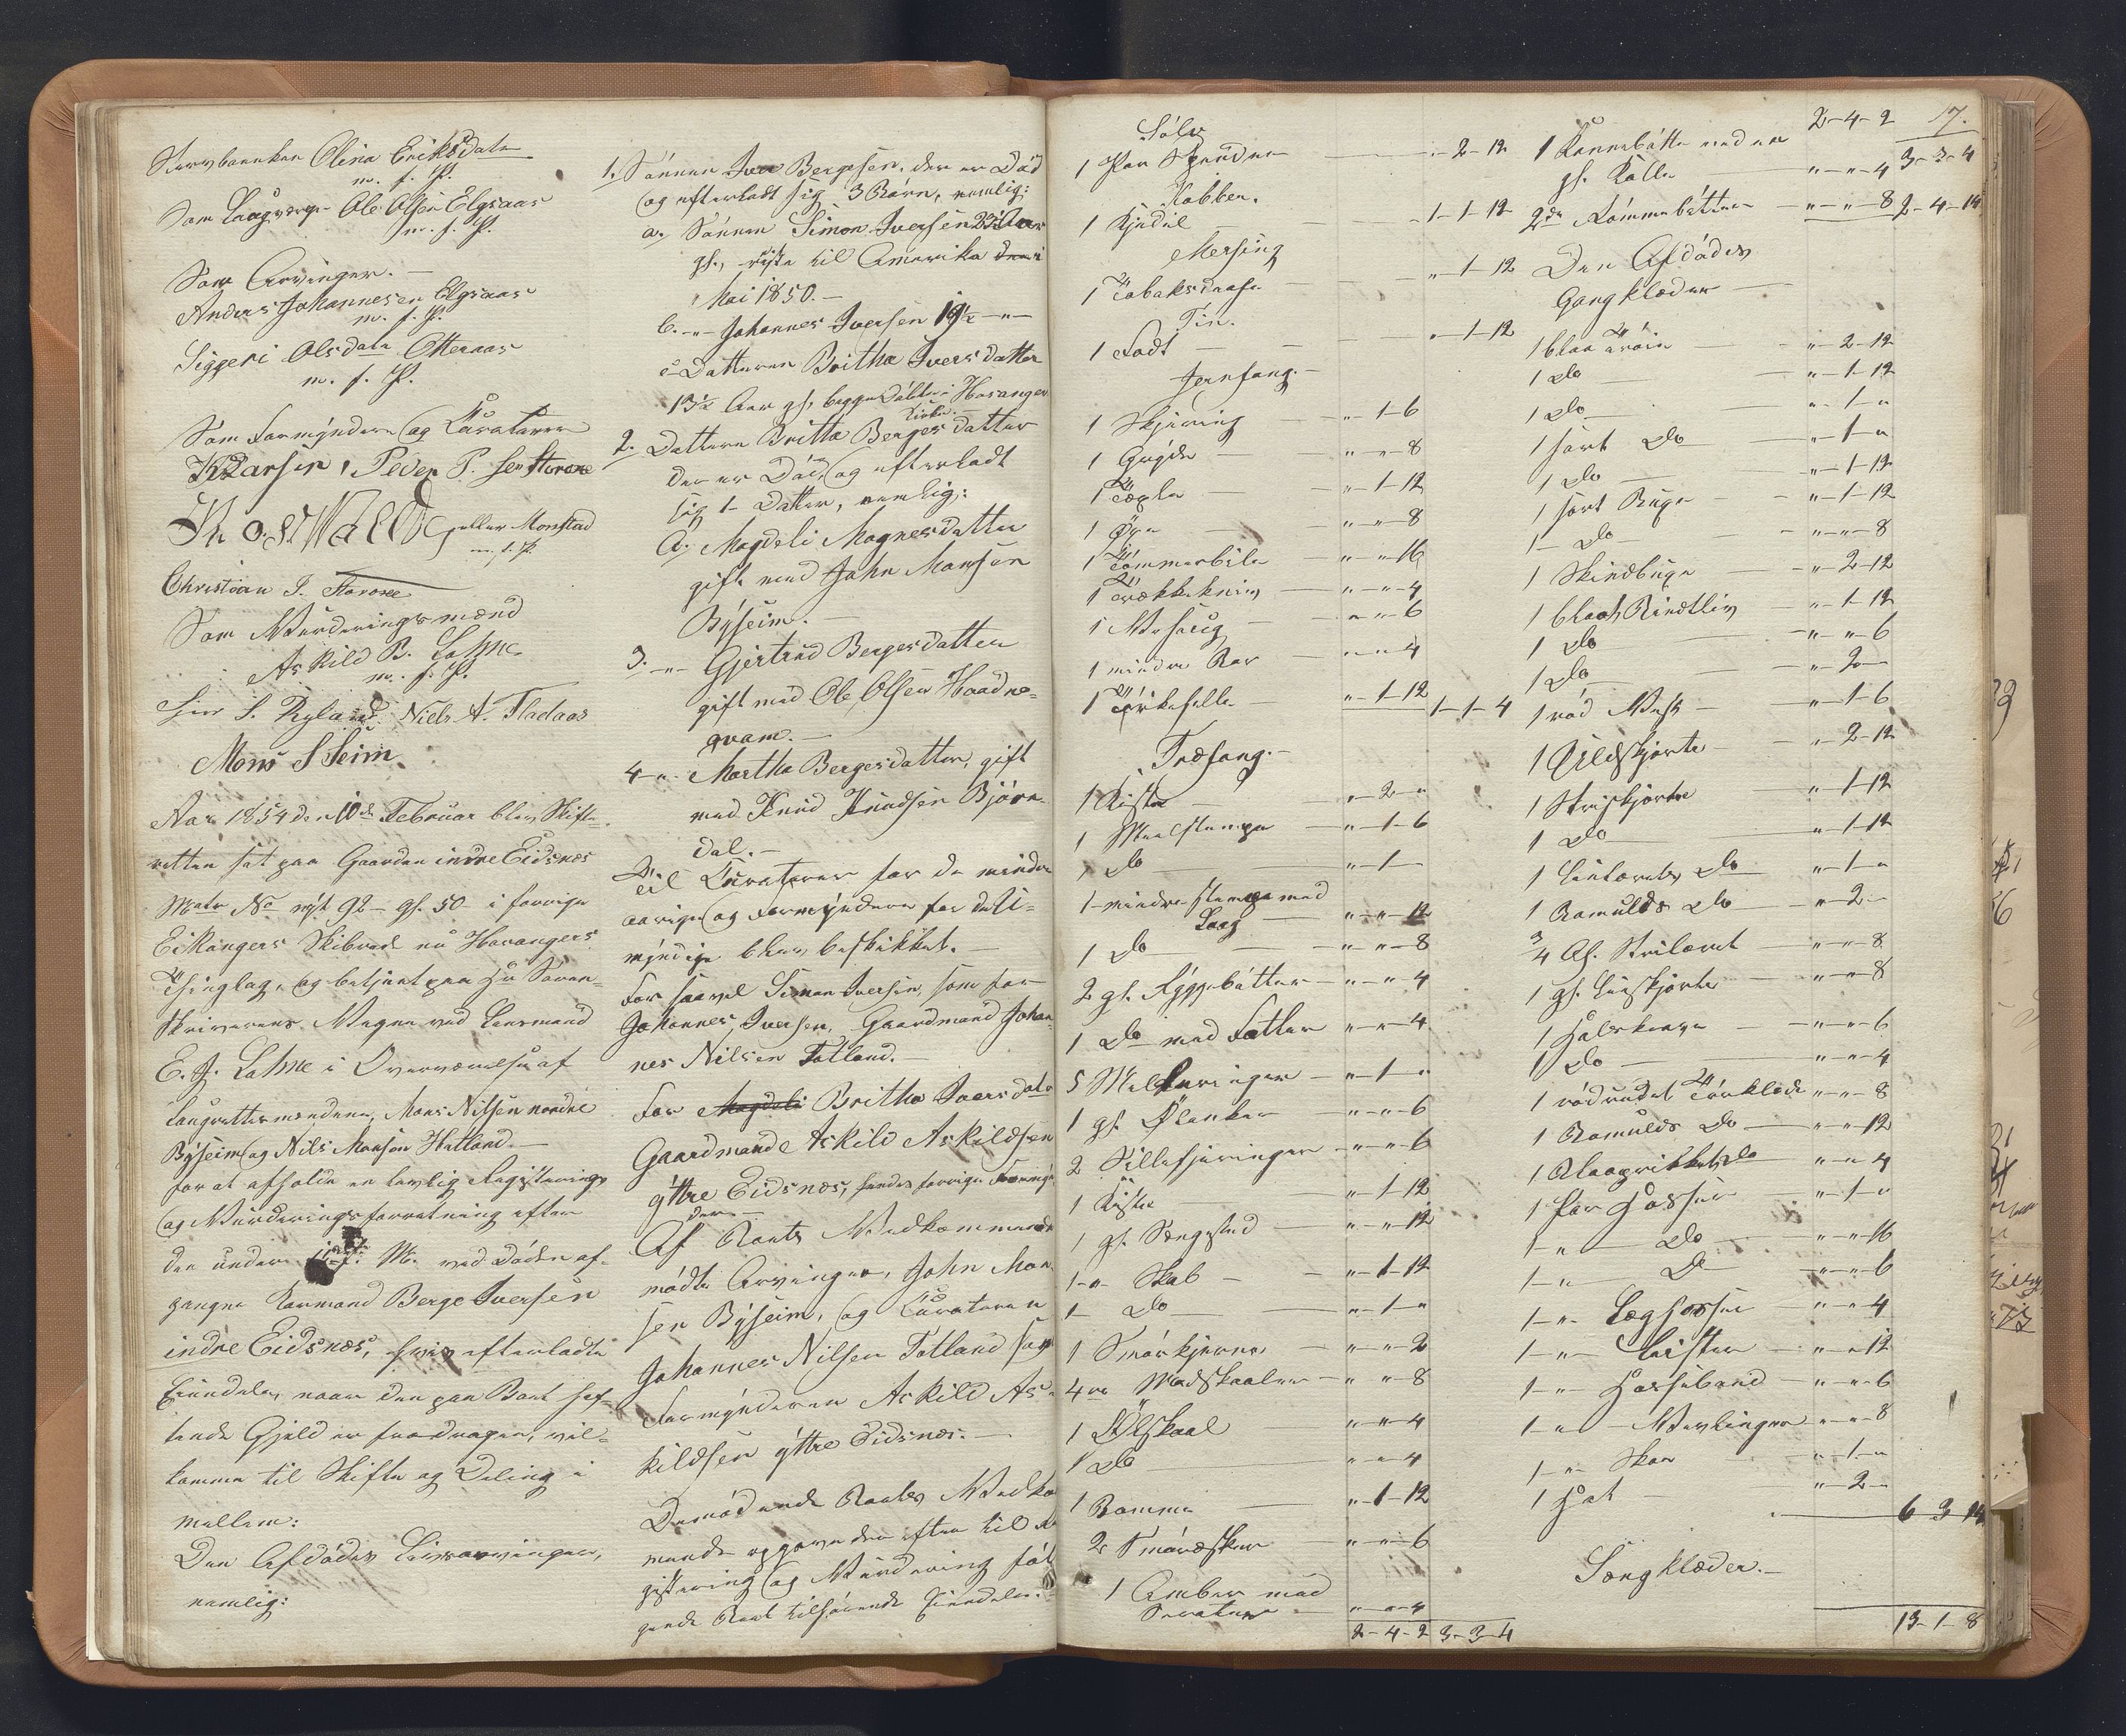 Stervboenken Olina Eriksdatr
m. f. P.
Som Laugværge Ole Olsen Elgsaas
m. f. P.
Som Arvinger. –
Anders Johannesen Elgsaas
m. f. P.
Siggeri Olsdatr Otteraas
m. f. P.
Som Formyndere og Curatorer
K Larsen, Peder P. sen Storoxe
galler Monstad
m. f. P.
Christian J.
Som Vurderingsmænd
Askild B. Lahne
m. f. P.
S. Ryland. Niels A. Fladaas
Mons S Seim
Aar 1854 den 10de Februar blev Skifte-
retten sat paa Gaarden indre Eidsnæs
Matr No nyt 92 – gl. 50 – i forrige
Eikangers Skibrede nu Hosangers
Thinglag, og betjent paa Hr Soren-
skriverens Vegne ved Lensmand
E. J. Lahne i Overværelse af
Laugrettesmændene, Mons Nilsen nordre
Byseim og Nils Monsen Hetland. –
for at afholde en lovlig Registerings
og Vurderingsforretning efter
den under M. ved Døden af-
gangne Kaarmand Berge Iversen
indre Eidsnæs, hvis efterladte
Eiendele, naar den paa Boet hef-
tende Gjeld er fradragen, vil-
komme til Skifte og Deling i
mellem:
Den Afdødes Livsarvinger,
nemlig:
1. Sønnen Iver Bergesen, der er Død
og efterladt sig 3 Børn, nemlig:
a. Sønnen Simon Iversen 23½ Aar
gl., reiste til Amerika
Mai 1850. –
b. –"– Johannes Iversen 19½ –"–
c. Datteren Britha Ivers datter
13½ Aar gl. begge Døbte i Hosanger
Kirke. –
2. Datteren Britha Berges datter
der er Død, og efterladt
sig 1 Datter, nemlig:
a. Magdeli Magnesdatter
gift med John Monsen
Byseim. –
3. –"– Gjertrud Bergesdatter
gift med Ole Olsen Haadne-
qvam. –
4 –"– Martha Bergesdatter, gift
med Knud Knudsen Bjørn-
dal. –
Til Curatorer for de mindre
aarige og Formyndere for de U-
myndige blev beskikket. –
For saavel Simon Iversen, som for
Johannes Iversen, Gaardmand Johan-
nes Nilsen Totland. –
For Magdeli Britha Iversdatr
Gaardmand Askild Askildsen
yttre Eidsnæs, hendes forrige Formyn-
der. –
Af Boets Vedkommende
mødte Arvinger, John Mon-
sen Byseim, og Curatoren
Johannes Nilsen Totland samt
Formynderen Askild As-
kildsen yttre Eidsnæs. –
De mødende Boets Vedkom-
mende opgave derefter til Re-
gistering og Vurdering føl-
gende Boet tilhørende Eiendele.
Sølv
1 Par Spender – "–2–12
Kobber.
1 Kjedel – 1–1–12
Messing
1 Tobaksdaase – "–1–12
Tin.
1 Fadt – "–1–12
Jernfang. –
1 Skjæring – "–1–6
1 Gryde – "–"–8
1 – "–1–12
1 Øxe – "–"–8
1 Tømmerbile – "–"–16
1 Trækkekniv – "–"–4
1 – "–"–6
1 mindre Bor – "–"–4
1 – "–1–12 1–1–4
Træfang. –
1 Kiste – "–2–"
1 Meelstampe – "–1–6
1 Do – "–1–
1 mindre stampe med
Laag – "–"–12
1 Do – "–"–8
2 gl. Ryggebøtter – "–"–4
1 Do med Fatler – "–"–4
5 Melkeringer – "–1–"
1 gl. – "–"–6
2 Sildekjæringer – "–"–6
1 Kiste – "–1–12
1 gl. Sengested – "–"–12
1 –"– Skab – "–1–12
1 Do – "–1–"
1 Smørkjerne – "–"–2
4re Madskaaler – "–"–8
1 Ølskaal – "–"–4
1 Do – "–"–4
1 Bomme – "–1–12
2 Smøræsker – "–"–6
1 Ambar med
– "–"–4
2–4–2 3–3–4
17.
2–4–2
1 Rennebøtte med en
gl. Kolle – "–"–4 3–3–4
2de Rømmebøtter – "–"–8 2–4–14
Den Afdødes
Gangklæder –
1 blaa Trøie – "–2–12
1 Do – "–1–12
1 Do – "–1–"
1 sort Do – "–1–"
1 Do – "–1–12
1 sort Buxe – "–1–12
1 Do – "–"–8
1 Skindbuxe – "–2–12
1 blaat Rundliv – "–1–12
1 Do – "–"–6
1 Do – "–2–
1 rød Vest – "–1–6
1 Uldskjorte – "–2–12
1 Striskjorte – "–1–12
1 Do – "–1–12
1 Do – "–1–"
1 Bomulds Do – "–2–
3/4 Al. – "–"–8
1 gl. Liinskjorte – "–"–8
1 – "–"–6
1 Do – "–"–4
1 rødrudet Tørklæde – "–"–8
1 Bomulds Do – "–"–12
1 Do – "–"–4
1 Par Hosser – "–1–"
1 –"– Do – "–"–16
1 –"– Do – "–"–6
1 –"– Læghosser – "–"–4
1 –"– Leister – "–"–12
1 –"– Hosebaand – "–"–6
1 –"– Vævlinger – "–"–8
1 –"– Skoe – "–1–"
1 Hat – "–2–
6–3–14
Sengklæder. –
13–1–8